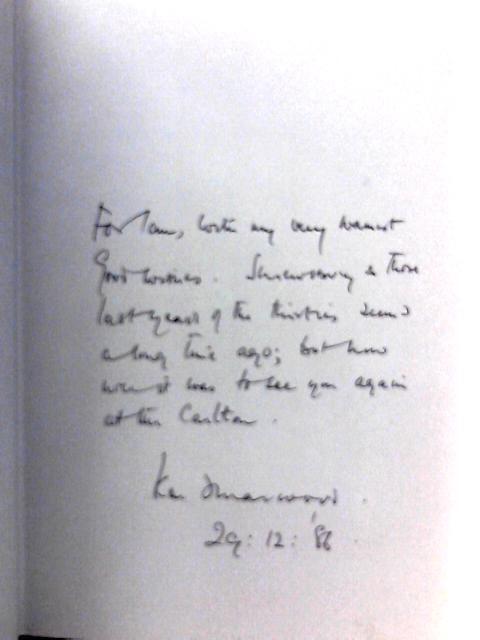 For Ian, with my very warmest
Good wishes. Shrewsbury & those
last years of the thirties seems
a long time ago; but how
nice it was to see you again
at the Carlton.
Ken
29: 12: '86